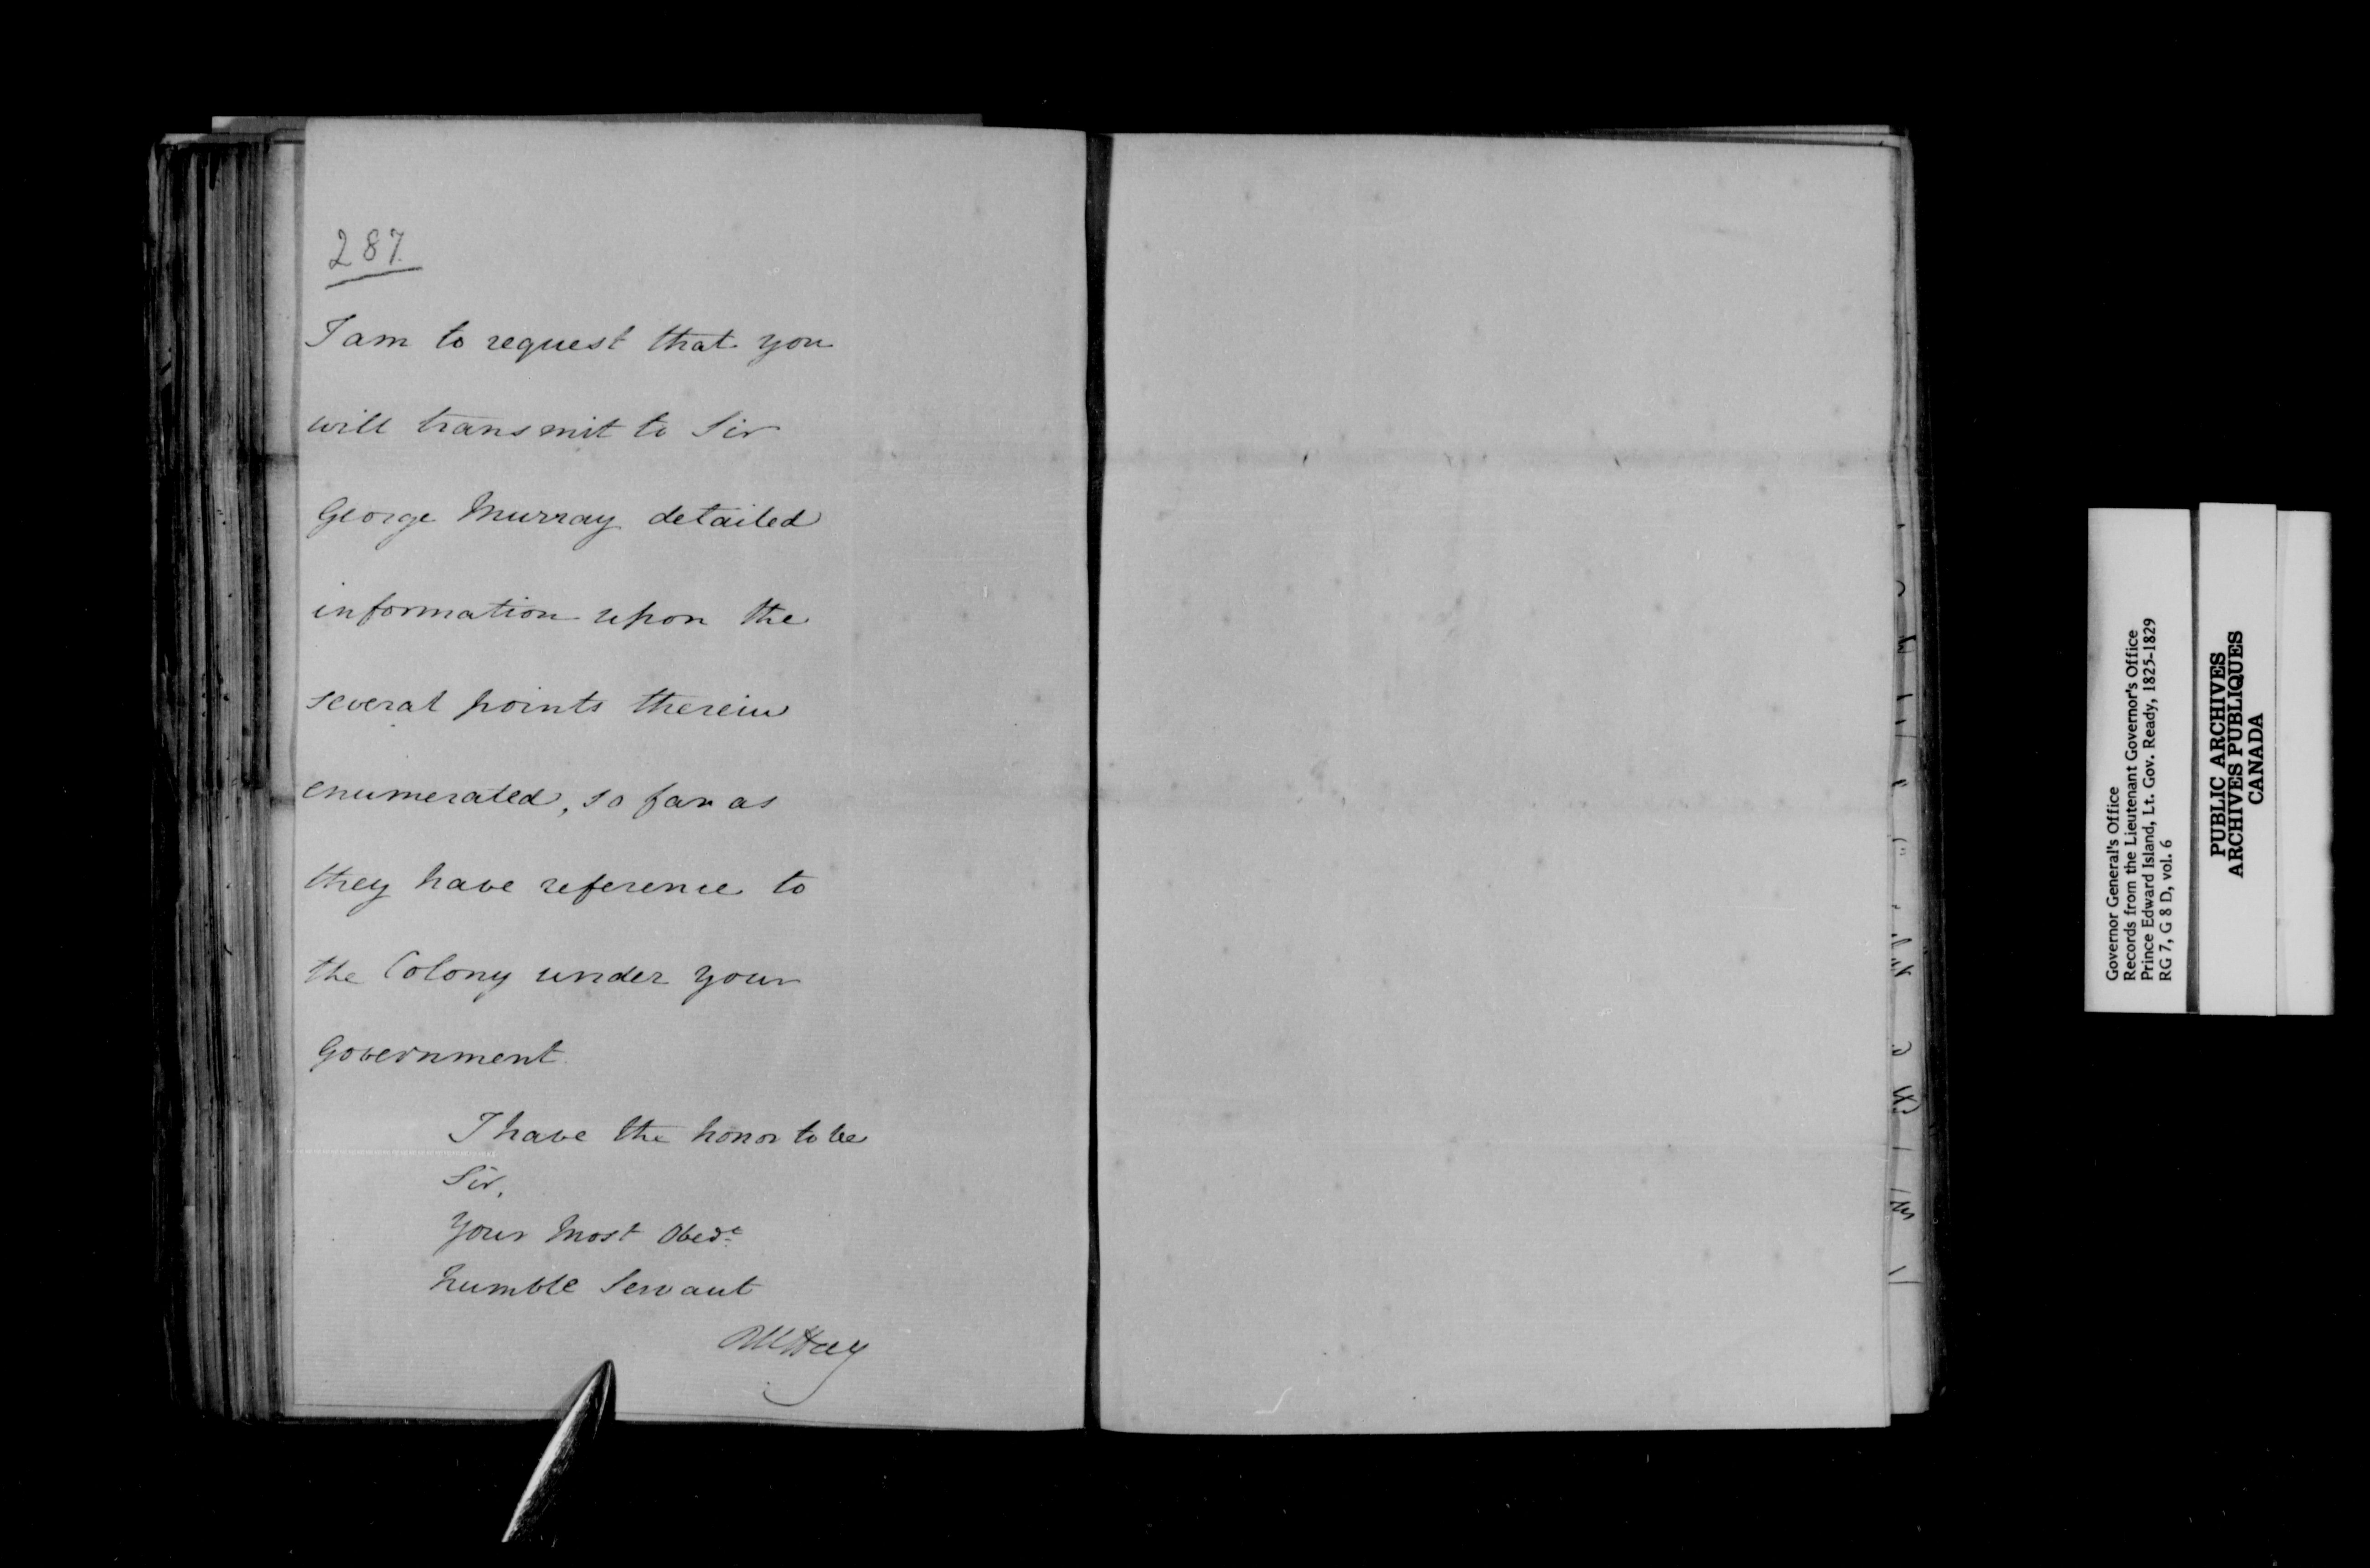 287.
I am to request that you
will transmit to Sir
George Murray detailed
information upon the
several points therein
enumerated, so far as
they have reference to
the Colony under your
Government.
I have the honor to be
Sir,
Your Most Obedt
humble Servant
RWHay
Governor General's Office
Records from the Lieutenant Governor's Office
Prince Edward Island, Lt. Gov. Ready, 1825-1829
RG 7, G 8 D, vol. 6
PUBLIC ARCHIVES
ARCHIVES PUBLIQUES
CANADA